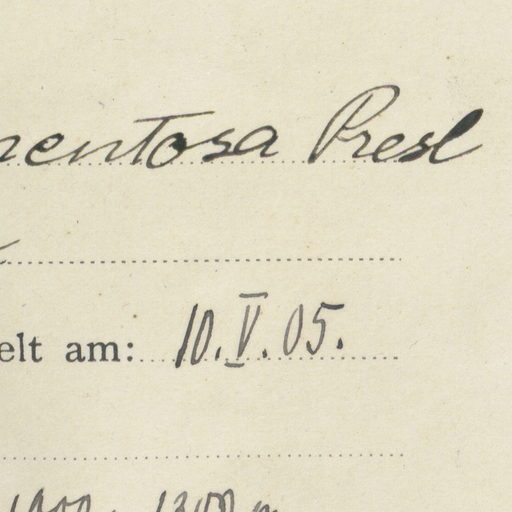 mentosa Presl
elt am: 10. V. 05.
1300 m